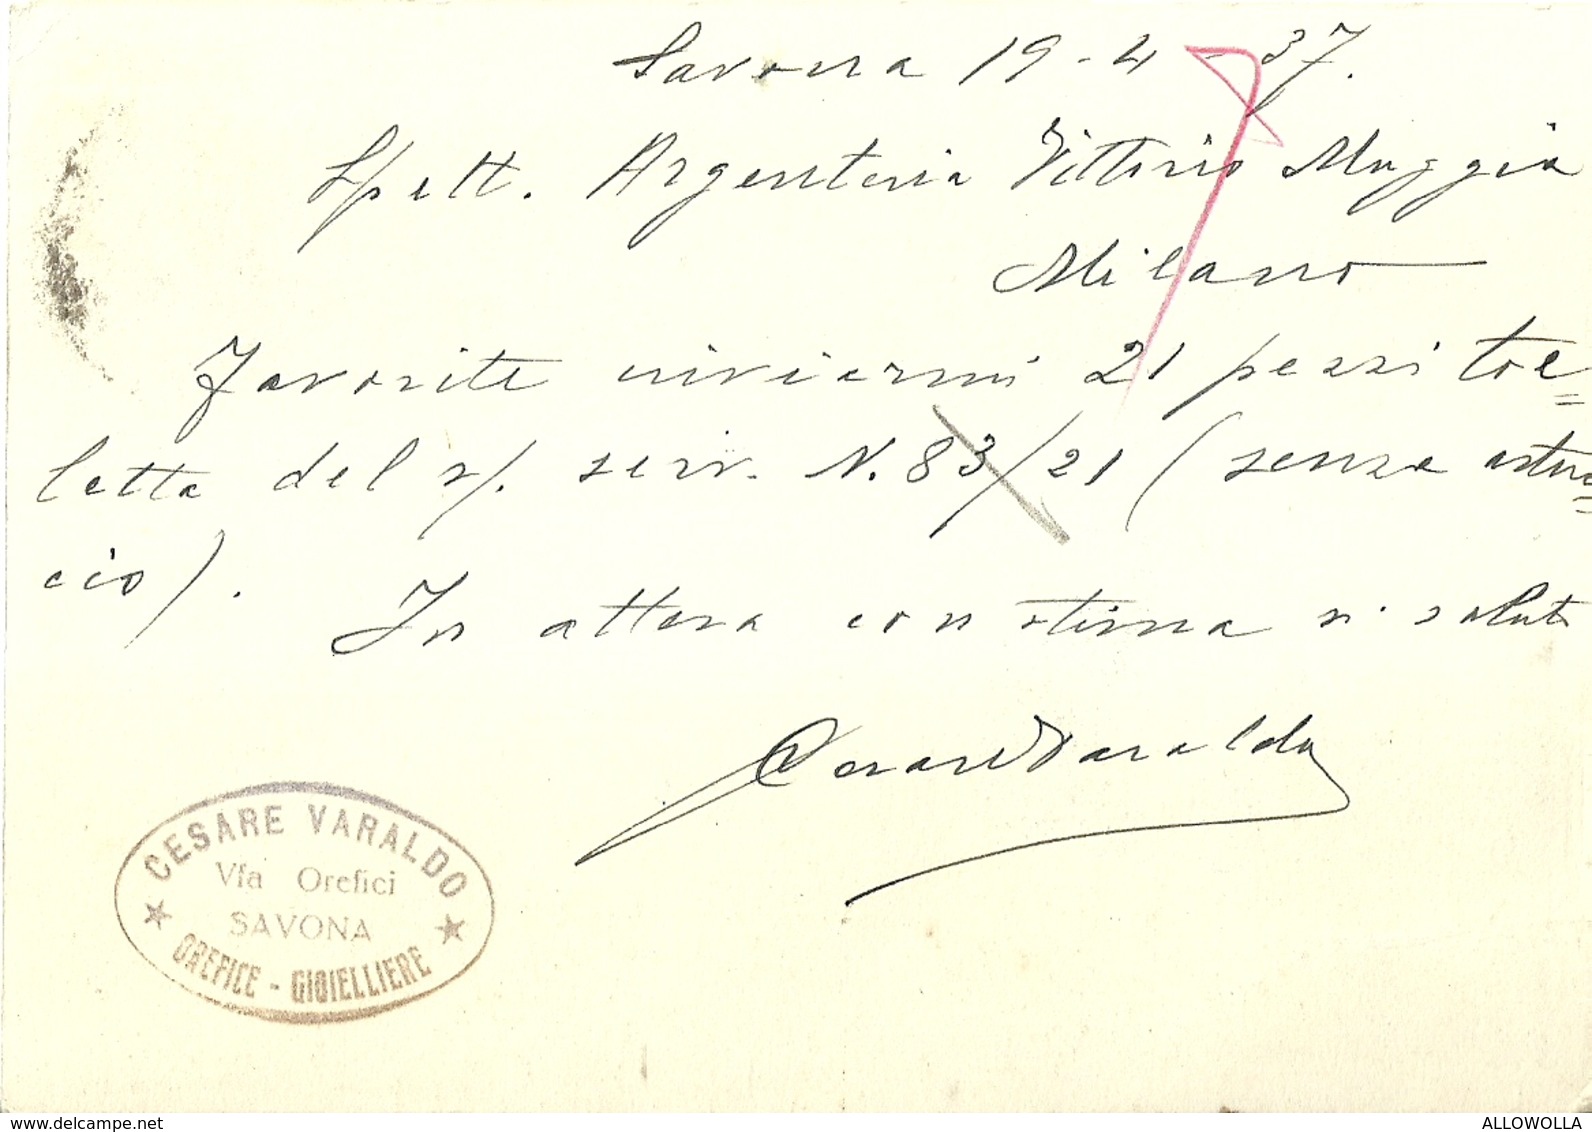 Savona 19-4-37.
Spett. Argenteria Vittorio Muggia
Milano
Favorite inviarmi 21 pezzi toe=
letta del s/. serv. N. 83/21 (senza astuc=
cio).
In attesa con stima vi saluto
Cesare Varaldo
CESARE VARALDO
Via Orefici
SAVONA
OREFICE - GIOIELLIERE
www.delcampe.net
ALLOWOLLA